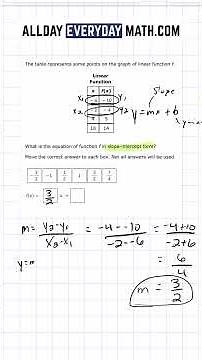 ALLDAY EVERYDAY MATH.COM
The table represents some points on the graph of linear function f.
Linear
Function
x f(x)
x₁ -6 -10 y₁
x₂ -2 -4 y₂
4 5
10 14
Slope
y=mx+b
What is the equation of function f in slope-intercept form?
Move the correct answer to each box. Not all answers will be used.
f(x) = 3/2 x +
m = y₂-y₁/x₂-x₁ = -4--10/-2--6 = -4+10/-2+6
= 6/4
y=m
m = 3/2